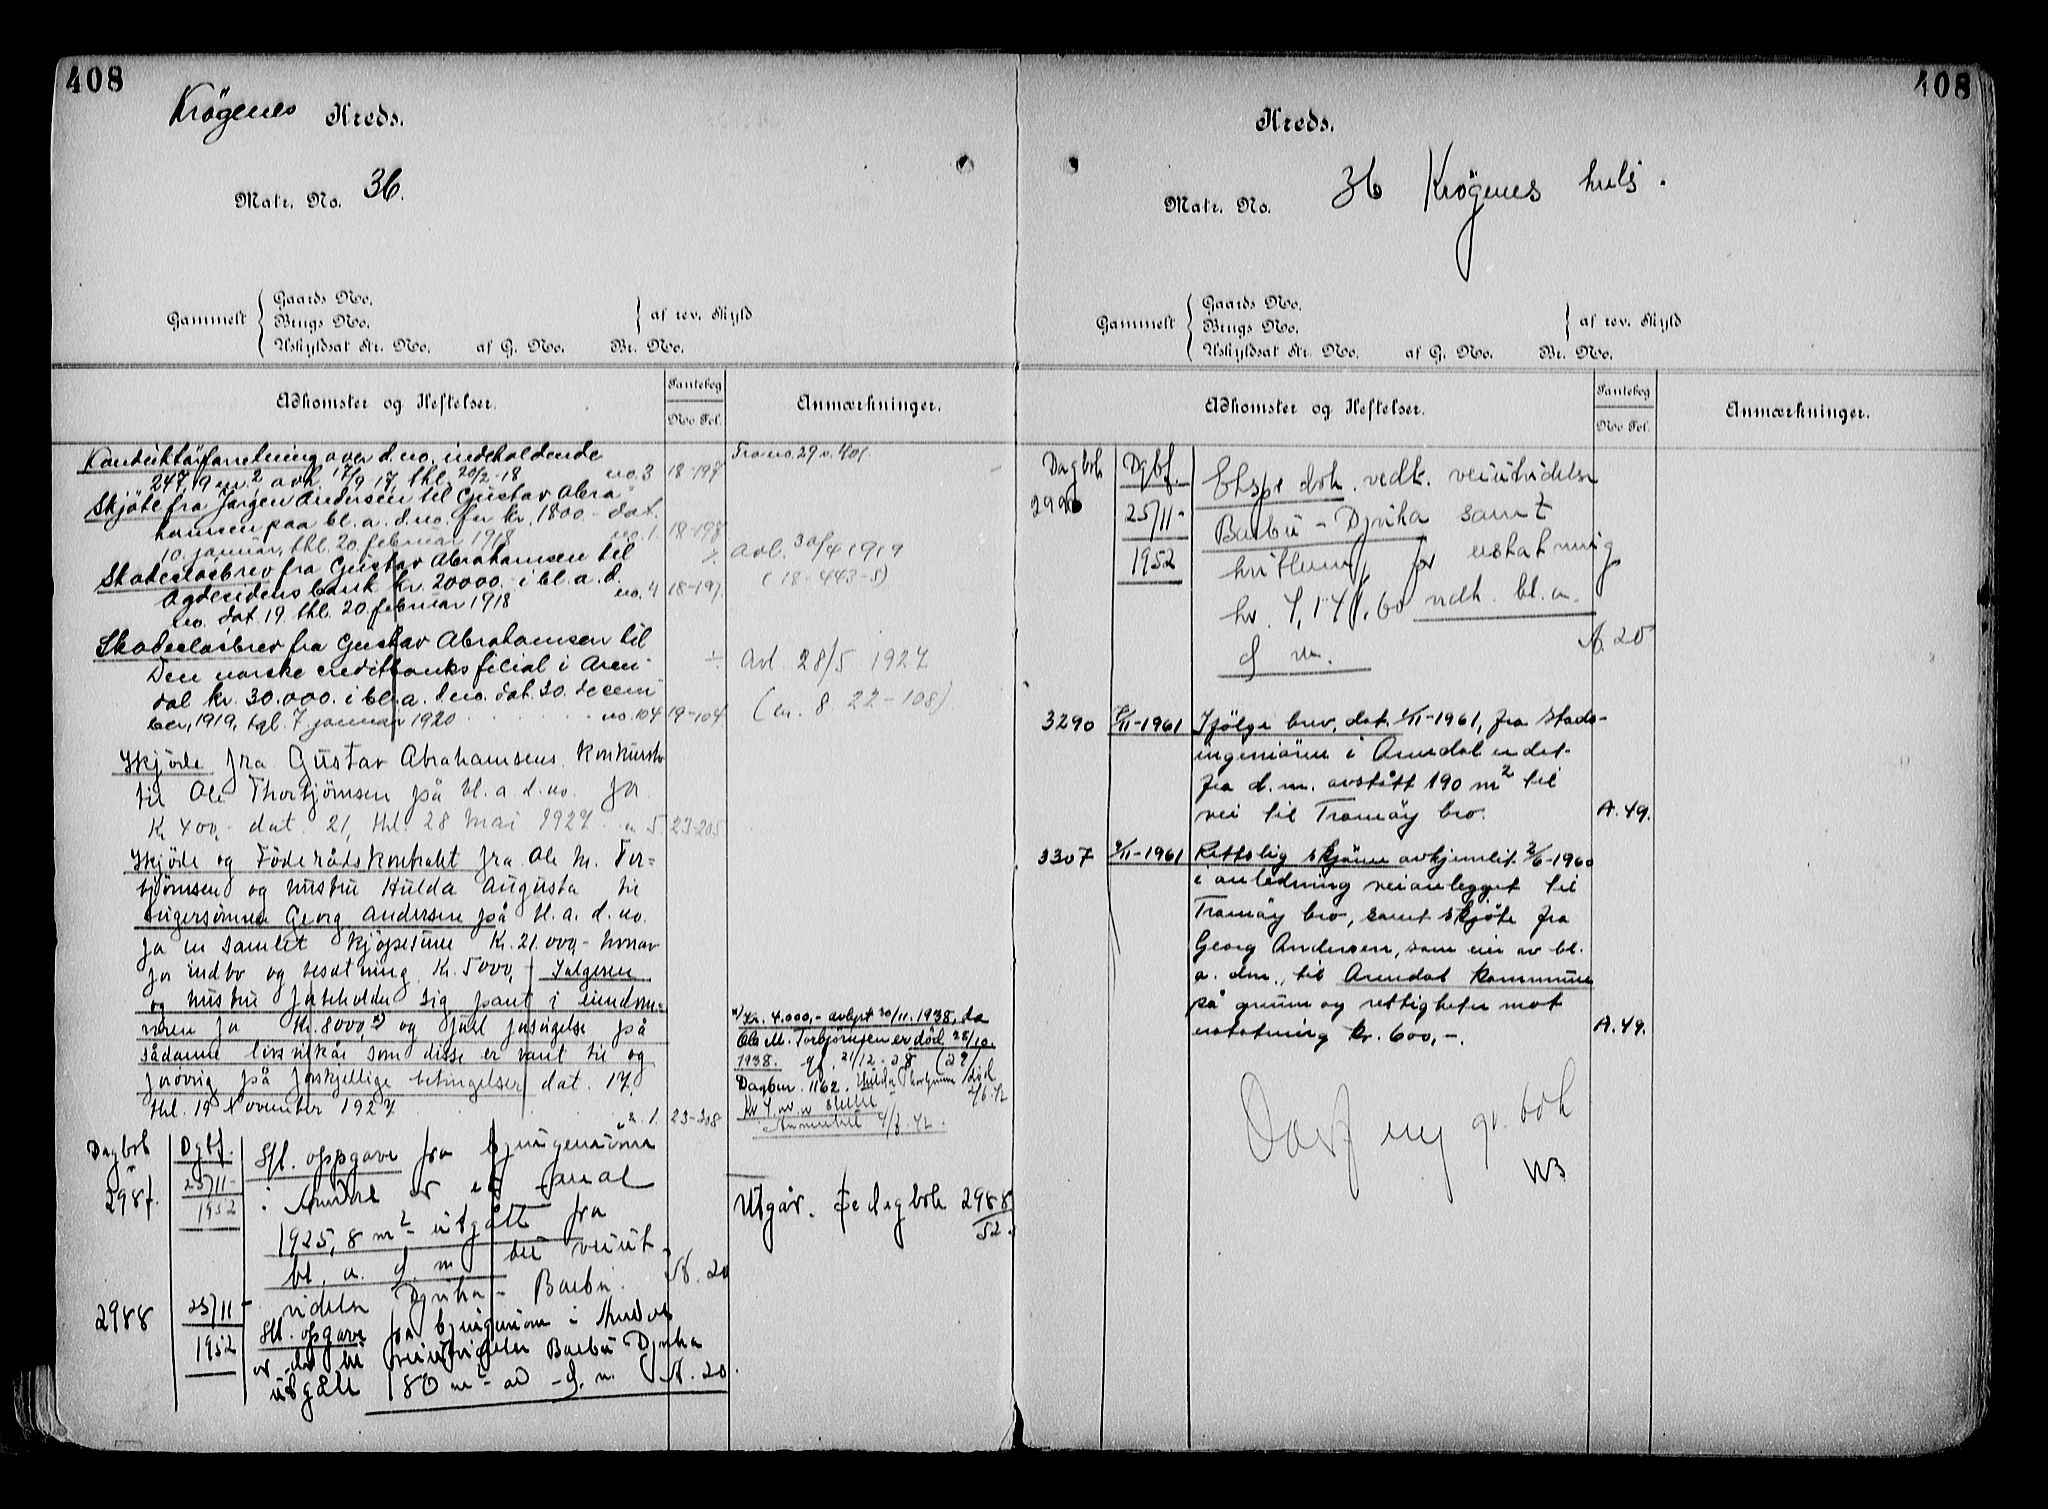 408
Krögenes Kreds.
Matr. No. 36.
Gammelt
Gaards No.
Brugs No.
Uskyldsat Str. No. af G. No. Br. No.
af rev. Skyld
Adkomster og Heftelser.
Pantebog
No Fol.
Anmærkninger.
Konduktörforretning over d. no, indeholdende
247,9 m.² avh. 17/9 17, thl. 20/2-18 no. 3 18-197
Fra no. 29 v. 401.
Skjöte fra Jörgen Andersen til Gustav Abra-
hamsen paa bl. a. d. no. for kr. 1800.- dat.
10. januar, thl. 20. februar 1918 no. 1. 18-198
Skadeslösbrev fra Gustav Abrahamsen til
Agdesidens bank kr. 20000.- i bl. a. d.
no. dat. 19. thl. 20. februar 1918 no. 4 18-197.
÷ Avl. 30/4 1919
(18-443-5)
Skadeslösbrev fra Gustav Abrahamsen til
Den norske creditbanks filial i Aren-
dal kr. 30.000. i bl. a. d. no. dat. 30. decem-
ber, 1919, tgl. 7. januar 1920 no. 104 19-104
÷ Avl. 28/5 1927
(nr. 8 22-108)
Skjöde fra Gustav Abrahamsens konkursbo
til Ole Thorbjörnsen på bl. a. d. no. for
Kr 400,- dat. 21, thl. 28 mai 1927 n 5 23-205
Skjöde og Föderådskontrakt fra Ole M. Tor=
björnsen og hustru Hulda Augusta til
svigersönnen Georg Andersen på bl. a. d. no.
for en samlet kjöpesum Kr. 21.000,- hvorav
for indbo og besætning Kr. 5000,- Selgeren
og hustru forbeholder sig pant i eiendom=
men for Kr. 8000,- x) og fuld forsörgelse på
sådanne livsvilkår som disse er vant til og
forövrig på forskjellige betingelser dat. 17,
thl. 19 November 1927 n. 1. 23-308
x) Kr. 4.000,- avlyst 30/11. 1938, da
Ole M. Torbjörnsen er död 28/10.
1938.
Dagbnr. 1162. Hulda Thorbjörnsen död
Utgår. Se dagbok 2988/52.
Dagbok Dgbf. Stl. oppgave fra byingeniören
2987. 25/11- 1952 i Arendal over et areal
1925,8 m² utgått fra
bl. a. d. m til veiut-
videlse Djvika - Barbu. A. 20
2988 25/11- 1952 Stl. opgave fra byingeniör i Arendal
over det til veiutvidelse Barbu-Djvika
utgåtte 180 m² av d. m. A. 20.
408
Kreds.
Matr. No. 36 Krögenes
Gammelt
Gaards No.
Brugs No.
Uskyldsat Str. No. af G. No. Br. No.
af rev. Skyld
Adkomster og Heftelser.
Pantebog
No Fol.
Anmærkninger.
Dagbok Dgbf. Ekspr dok. vedk. veiutvidelse
25/11- 1952 Barbu - Djvika samt
kvittering for erstatning
vedk. bl. a.
d m. A. 20
3290 8/11-1961 Ifölge brev, dat. 1/11-1961, fra stads-
ingeniören i Arendal er det
fra d. m. avstått 190 m² til
vei til Tromöy bro. A. 49.
3307 9/11-1961 Rettslig skjönn avhjemlet 2/6-1960
i anledning veianlegget til
Tromöy bro, samt skjöte fra
Georg Andersen, som eier av bl.
a. dm., til Arendal kommune
på grunn og rettigheter mot
erstatning kr. 600,-. A. 49.
Overf ny gr. bok